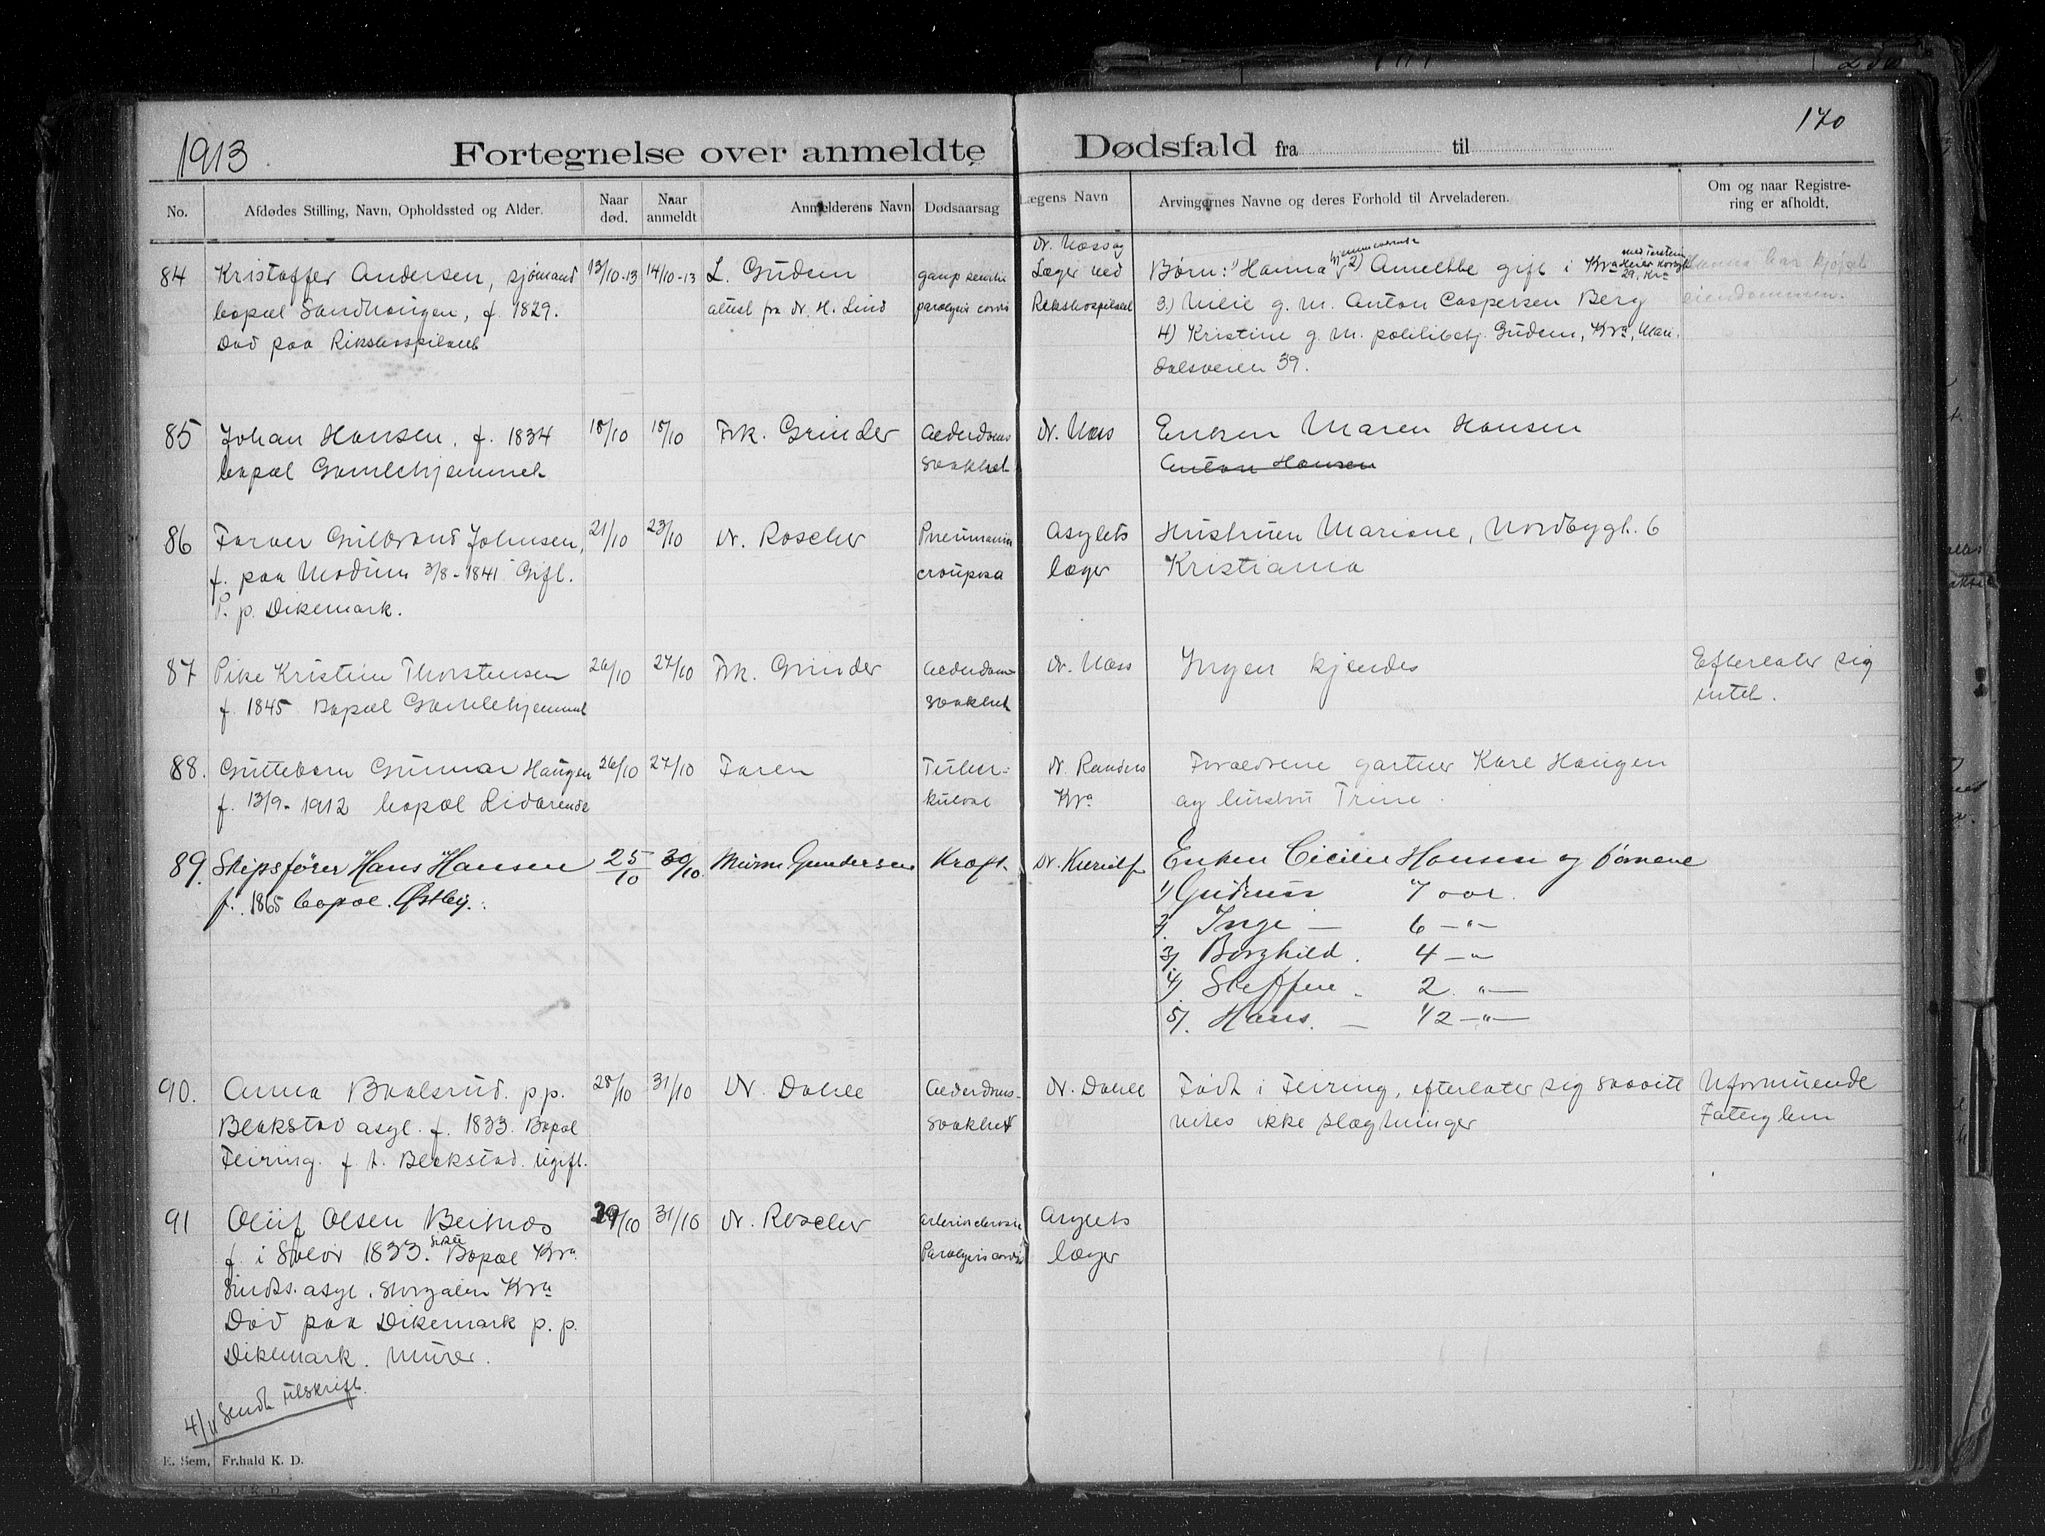 170
1913.
Fortegnelse over anmeldte Dødsfald fra til
No. Afdødes Stilling, Navn, Opholdssted og Alder. Naar død. Naar anmeldt Anmelderens Navn Dødsaarsag Lægens Navn Arvingernes Navne og deres Forhold til Arveladeren. Om og naar Registrering er afholdt.
84 Kristoffer Andersen, sjømand 13/10-13 14/10-13 L. Gudem
bopæl Sandhaugen, f. 1829. attest fra Dr. H. Lind paralysis cordis
Død paa Rikshospitalet
Dr. Næss og
Læger ved
Rikshospitalet
Børn: 1) Hanna hjemmeværende 2) Anette gift i Kra
3.) Milie g. m. Anton Caspersen Berg
4) Kristine g. m. politibetj. Gudem, Kra, Man-
dalsveien 39.
Hanna har kjøpt
eiendommen.
85 Johan Hansen, f. 1834 18/10 18/10 Frk. Grinder Alderdoms Dr. Næss Enken Maren Hansen
bopæl Gamlehjemmet svakhet Anton Hansen
86 Farver Gulbrand Johnsen, 21/10 23/10 Dr. Roscher Pneumonia Asylets Hustruen Mariane, Nordbygt. 6
f. paa Modum 3/8-1841 Gift. crouposa læger Kristiania
P. p. Dikemark.
87 Pike Kristine Thorstensen 26/10 27/10 Frk. Grinder Alderdom- Dr. Næss Ingen kjendes Efterlater sig
f. 1845 Bopæl Gamlehjemmet svakhet intet.
88. Guttebarn Gunnar Haugen 26/10 27/10 Faren Tuber- Dr. Randers Forældrene gartner Karl Haugen
f. 13/9-1912 bopæl Lidarende kulose Kra og hustru Trine.
89. Skipsfører Hans Hansen 25/10 30/10 Gundersen Kræft Enken Cicilie Hansen og børnene
f. 1865 bopæl. Østby. 1) Gudrun 7 aar.
2/. Inge — 6 —"—
3/. Borghild. 4 —"
4/. Steffen — 2. "—
5/. Hans. — 1/2 —"—
90. Anna Baalsrud. p.p. 28/10 31/10 Dr. Dahle Alderdoms- Dr. Dahle Født i Feiring, efterlater sig saavitt Uformuende
Blakstad asyl. f. 1833. Bopæl svakhet vites ikke slægtninger Fattiglem
Feiring. f. t. Blakstad. Ugift.
91 Oluf Olsen Beitnæs 29/10 31/10 Dr. Roscher Asylets
f. i Solør 1833. Sidst Bopæl Kra Paralysis cordis læger
Sinds. asyl, Storgaten Kra
Død paa Dikemark p. p.
Dikemark. Murer.
4/11 Sendt tilskrift.
E. Sem, Fr.hald K. D.